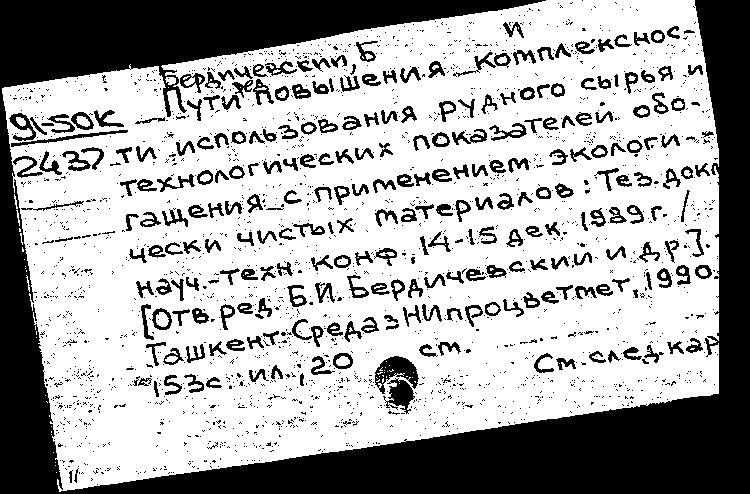 Бердичевский, Б И
ред
91-50К Пути повышения комплекснос-
2437 ти использования рудного сырья и
технологических показателей обо-
гащения с применением экологи-
чески чистых материалов: Тез. докл
науч.-техн. конф., 14-15 дек. 1989 г. /
[Отв. ред. Б.И. Бердичевский и др.]. -
Ташкент: СредазНИпроцветмет, 1990.
153с.: ил.; 20 см.
См. след. кар
11